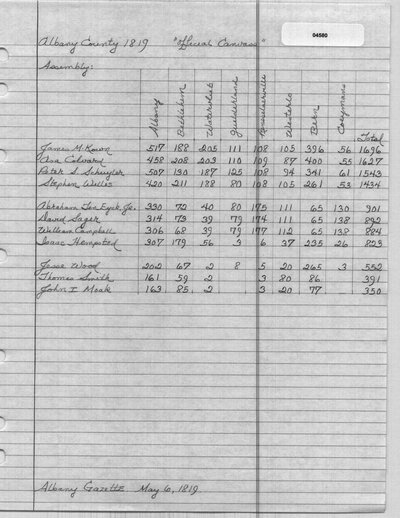 04560
Albany County 1819 "Official Canvass"
Assembly:
Albany Bethlehem Watervliet Guilderland Rensselaerville Westerlo Bern Coeymans Total
James McKown 517 188 205 111 108 105 396 56 1696
Asa Colvard 458 208 203 110 109 87 400 55 1627
Peter S. Schuyler 507 130 187 125 108 94 341 61 1543
Stephen Willes 420 211 188 80 108 105 261 53 1434
Abraham Ten Eyck, Jr. 330 72 40 80 175 111 65 130 901
David Sager 314 73 39 79 174 111 65 138 892
William Campbell 306 68 39 79 177 112 65 138 884
Isaac Hempsted 307 179 56 3 6 37 235 26 823
Jesse Wood 202 67 2 8 5 20 265 3 552
Thomas Smith 161 59 2 3 80 86 391
John I Moak 163 85 2 3 20 77 350
Albany Gazette May 6, 1819